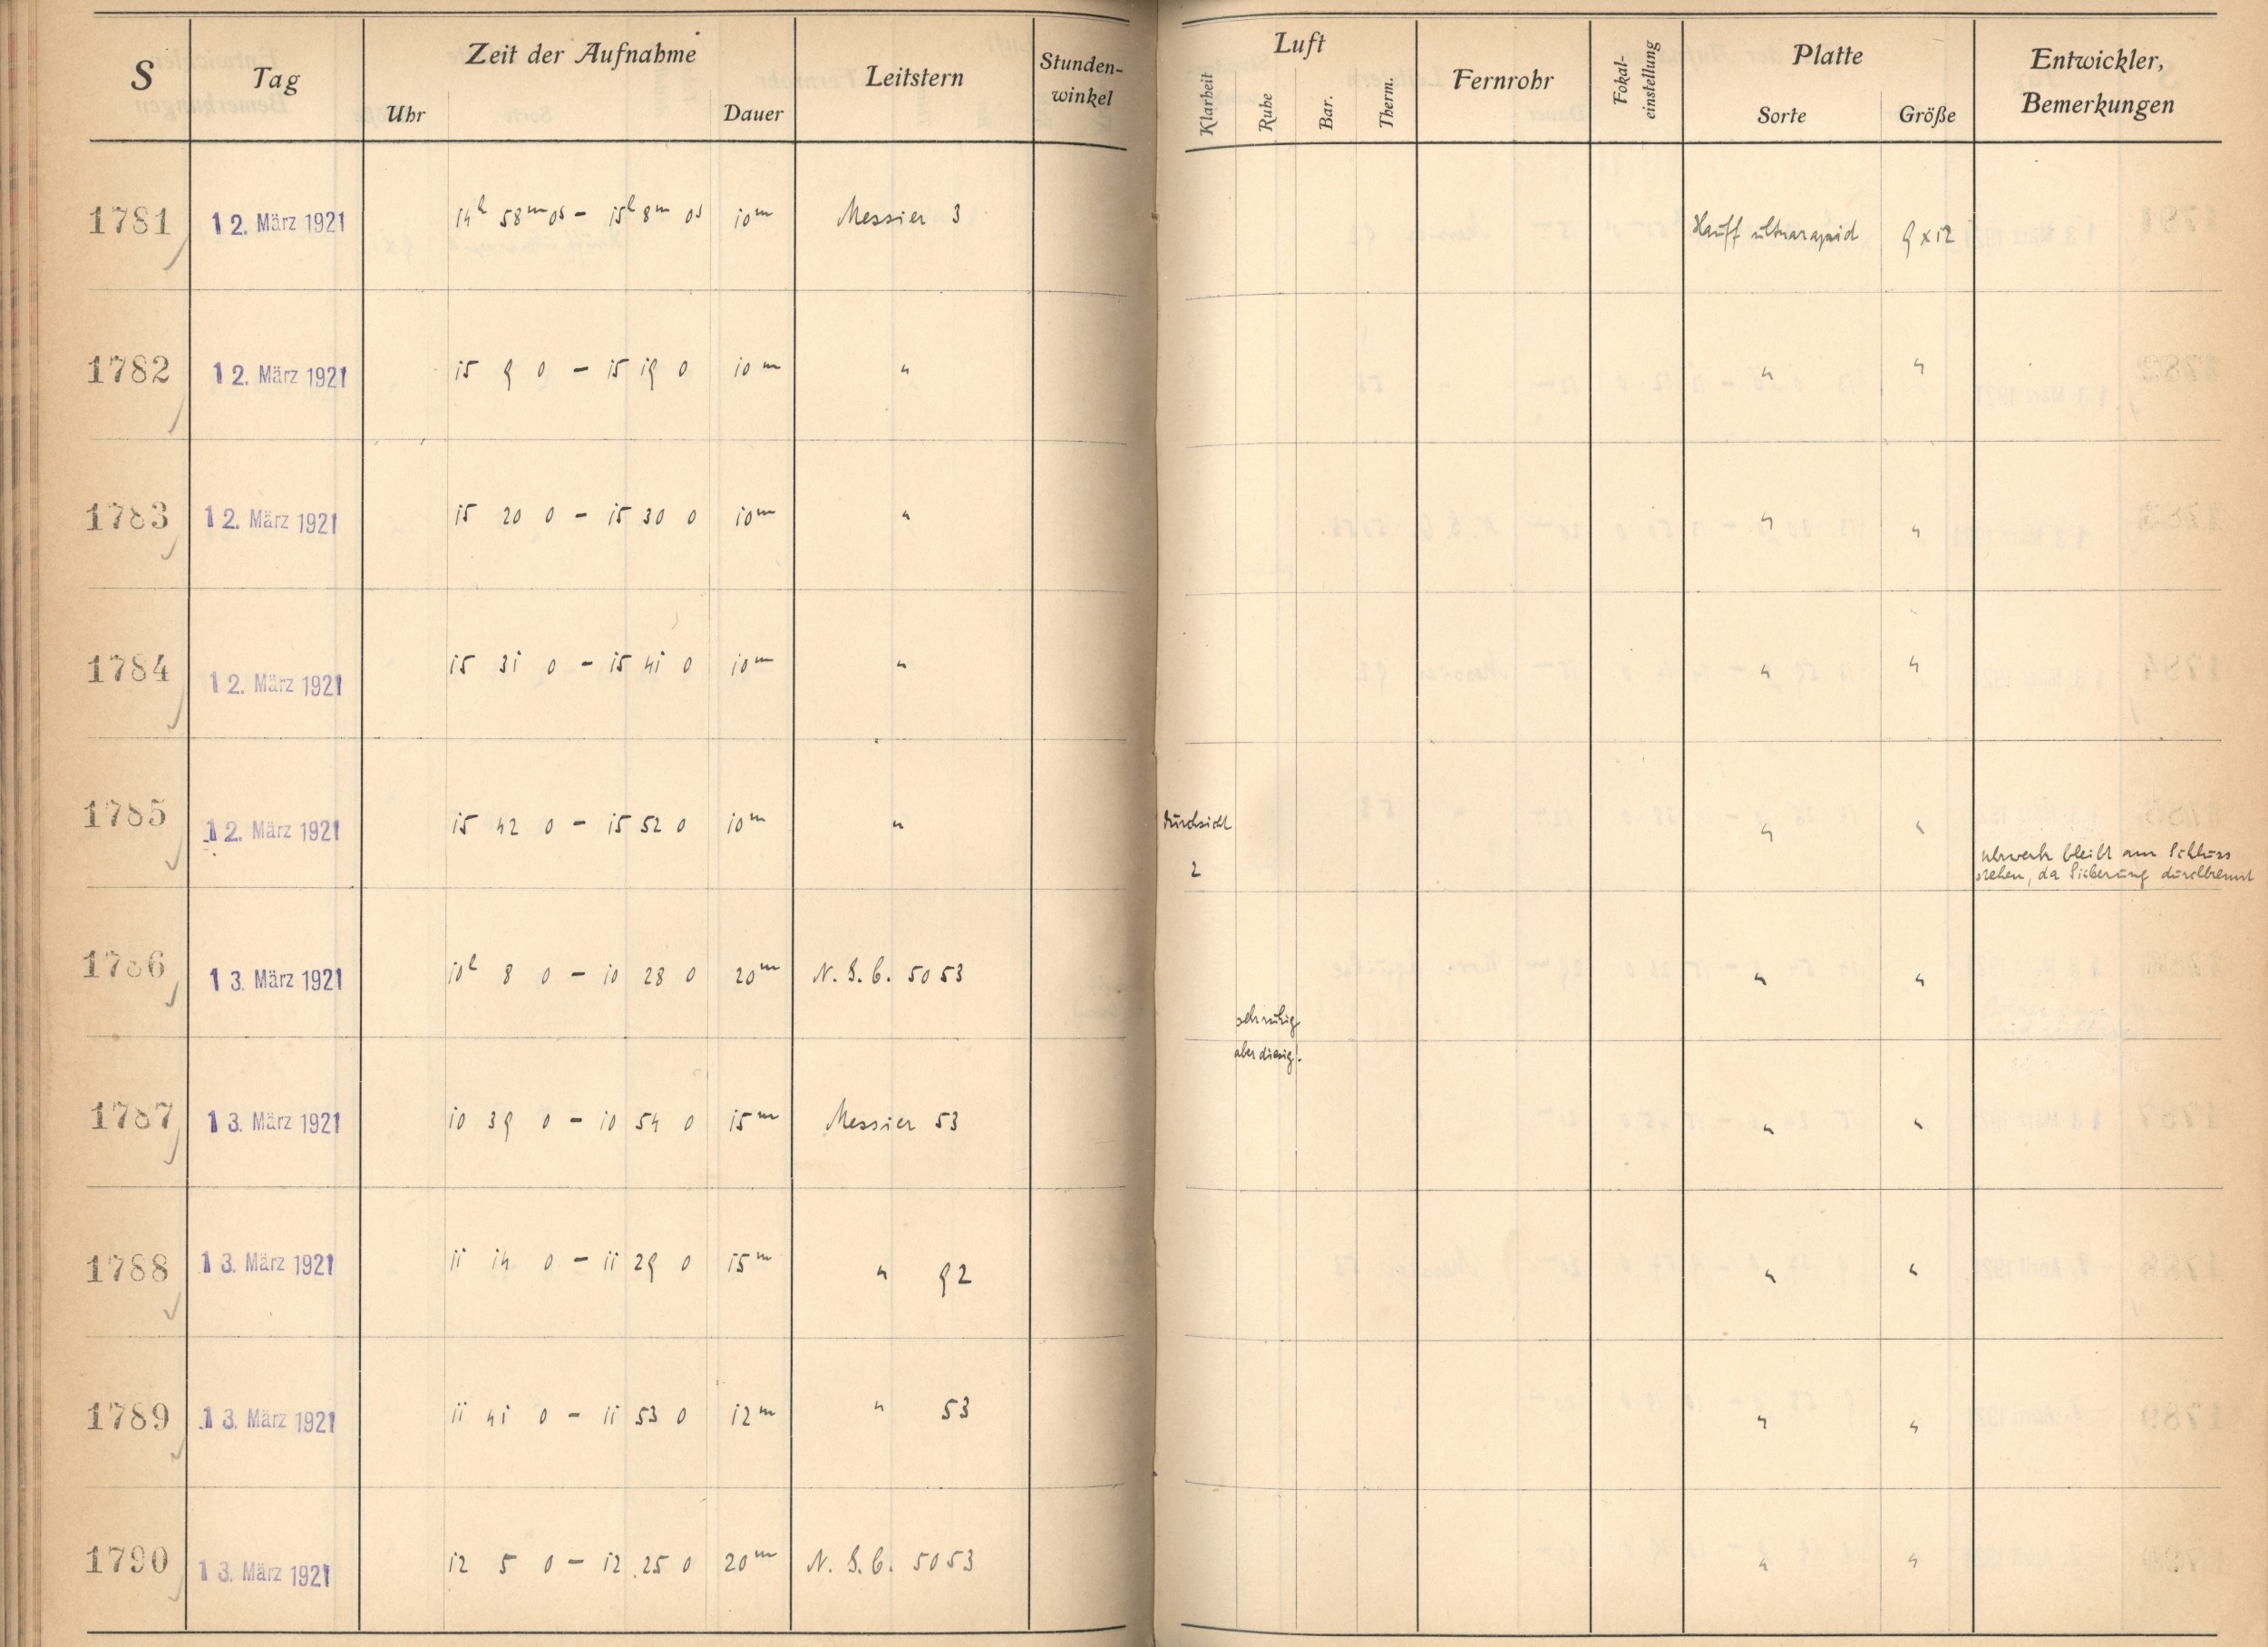 S Tag Zeit der Aufnahme Leitstern Stunden-
winkel
Uhr Dauer
Luft Fernrohr Fokal-
einstellung Platte Entwickler,
Bemerkungen
Klarheit Ruhe Bar. Therm. Sorte Größe
1781 12. März 1921 14h 58m 0s – 15h 8m 0s 10m Messier 3 Hauff ultrarapid 9x12
1782 12. März 1921 15 9 0 – 15 19 0 10m " " "
1783 12. März 1921 15 20 0 – 15 30 0 10m " " "
1784 12. März 1921 15 31 0 – 15 41 0 10m " " "
1785 12. März 1921 15 42 0 – 15 52 0 10m " Durchsicht " "
2 Uhrwerk bleibt am Schluss
stehen, da Sicherung durchbrennt
1786 13. März 1921 10h 8 0 – 10 28 0 20m N. G. C. 5053 " "
sehr ruhig
aber diesig!
1787 13. März 1921 10 39 0 – 10 54 0 15m Messier 53 " "
1788 13. März 1921 11 14 0 – 11 29 0 15m " 92 " "
1789 13. März 1921 11 41 0 – 11 53 0 12m " 53 " "
1790 13. März 1921 12 5 0 – 12 25 0 20m N. G. C. 5053 " "